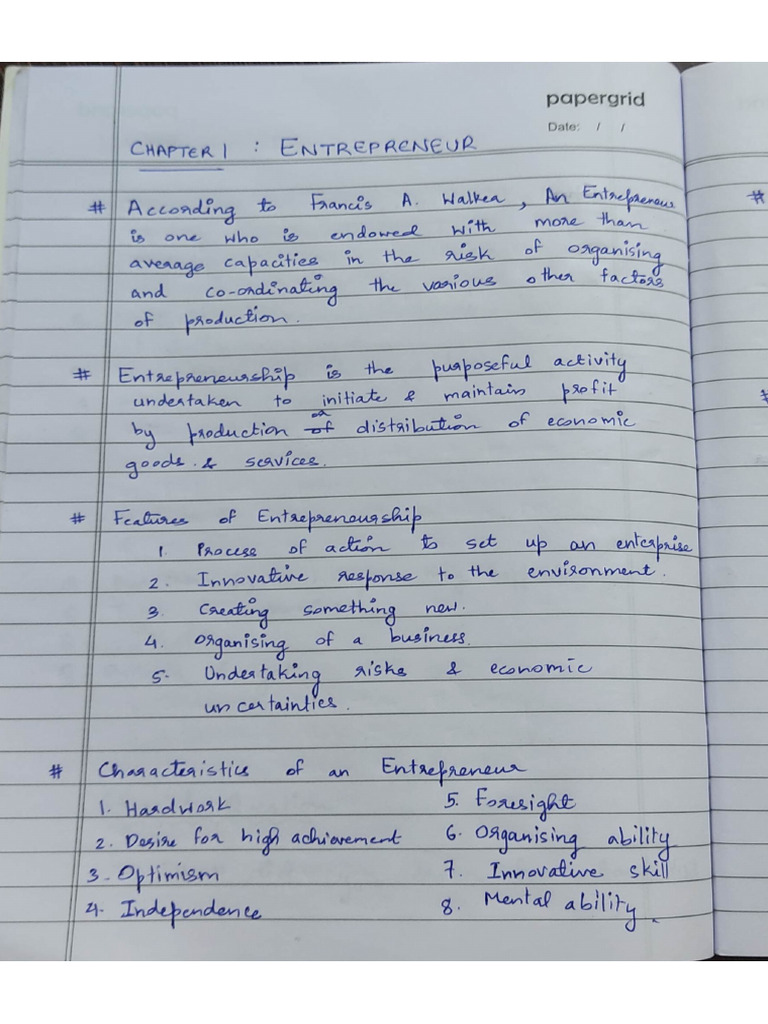 papergrid
Date: / /
CHAPTER 1 : ENTREPRENEUR
# According to Francis A. Walker, An Entrepreneur
is one who is endowed with more than
average capacities in the risk of organising
and co-ordinating the various other factors
of production.
# Entrepreneurship is the purposeful activity
undertaken to initiate & maintain profit
by production or distribution of economic
goods & services.
# Features of Entrepreneurship
1. Process of action to set up an enterprise
2. Innovative response to the environment.
3. Creating something new.
4. Organising of a business.
5. Undertaking risks & economic
uncertainties.
# Characteristics of an Entrepreneur
1. Hardwork
2. Desire for high achievement
3. Optimism
4. Independence
5. Foresight
6. Organising ability
7. Innovative skill
8. Mental ability.
#
#